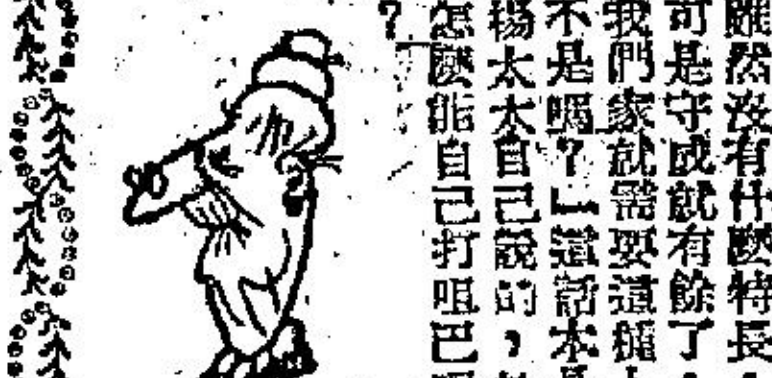 雖然没有什麼特長，
可是守成就有餘了，
我們家就需要這種
不是嗎？」這話本
楊太太自己說的，
怎麼能自己打咀巴
？